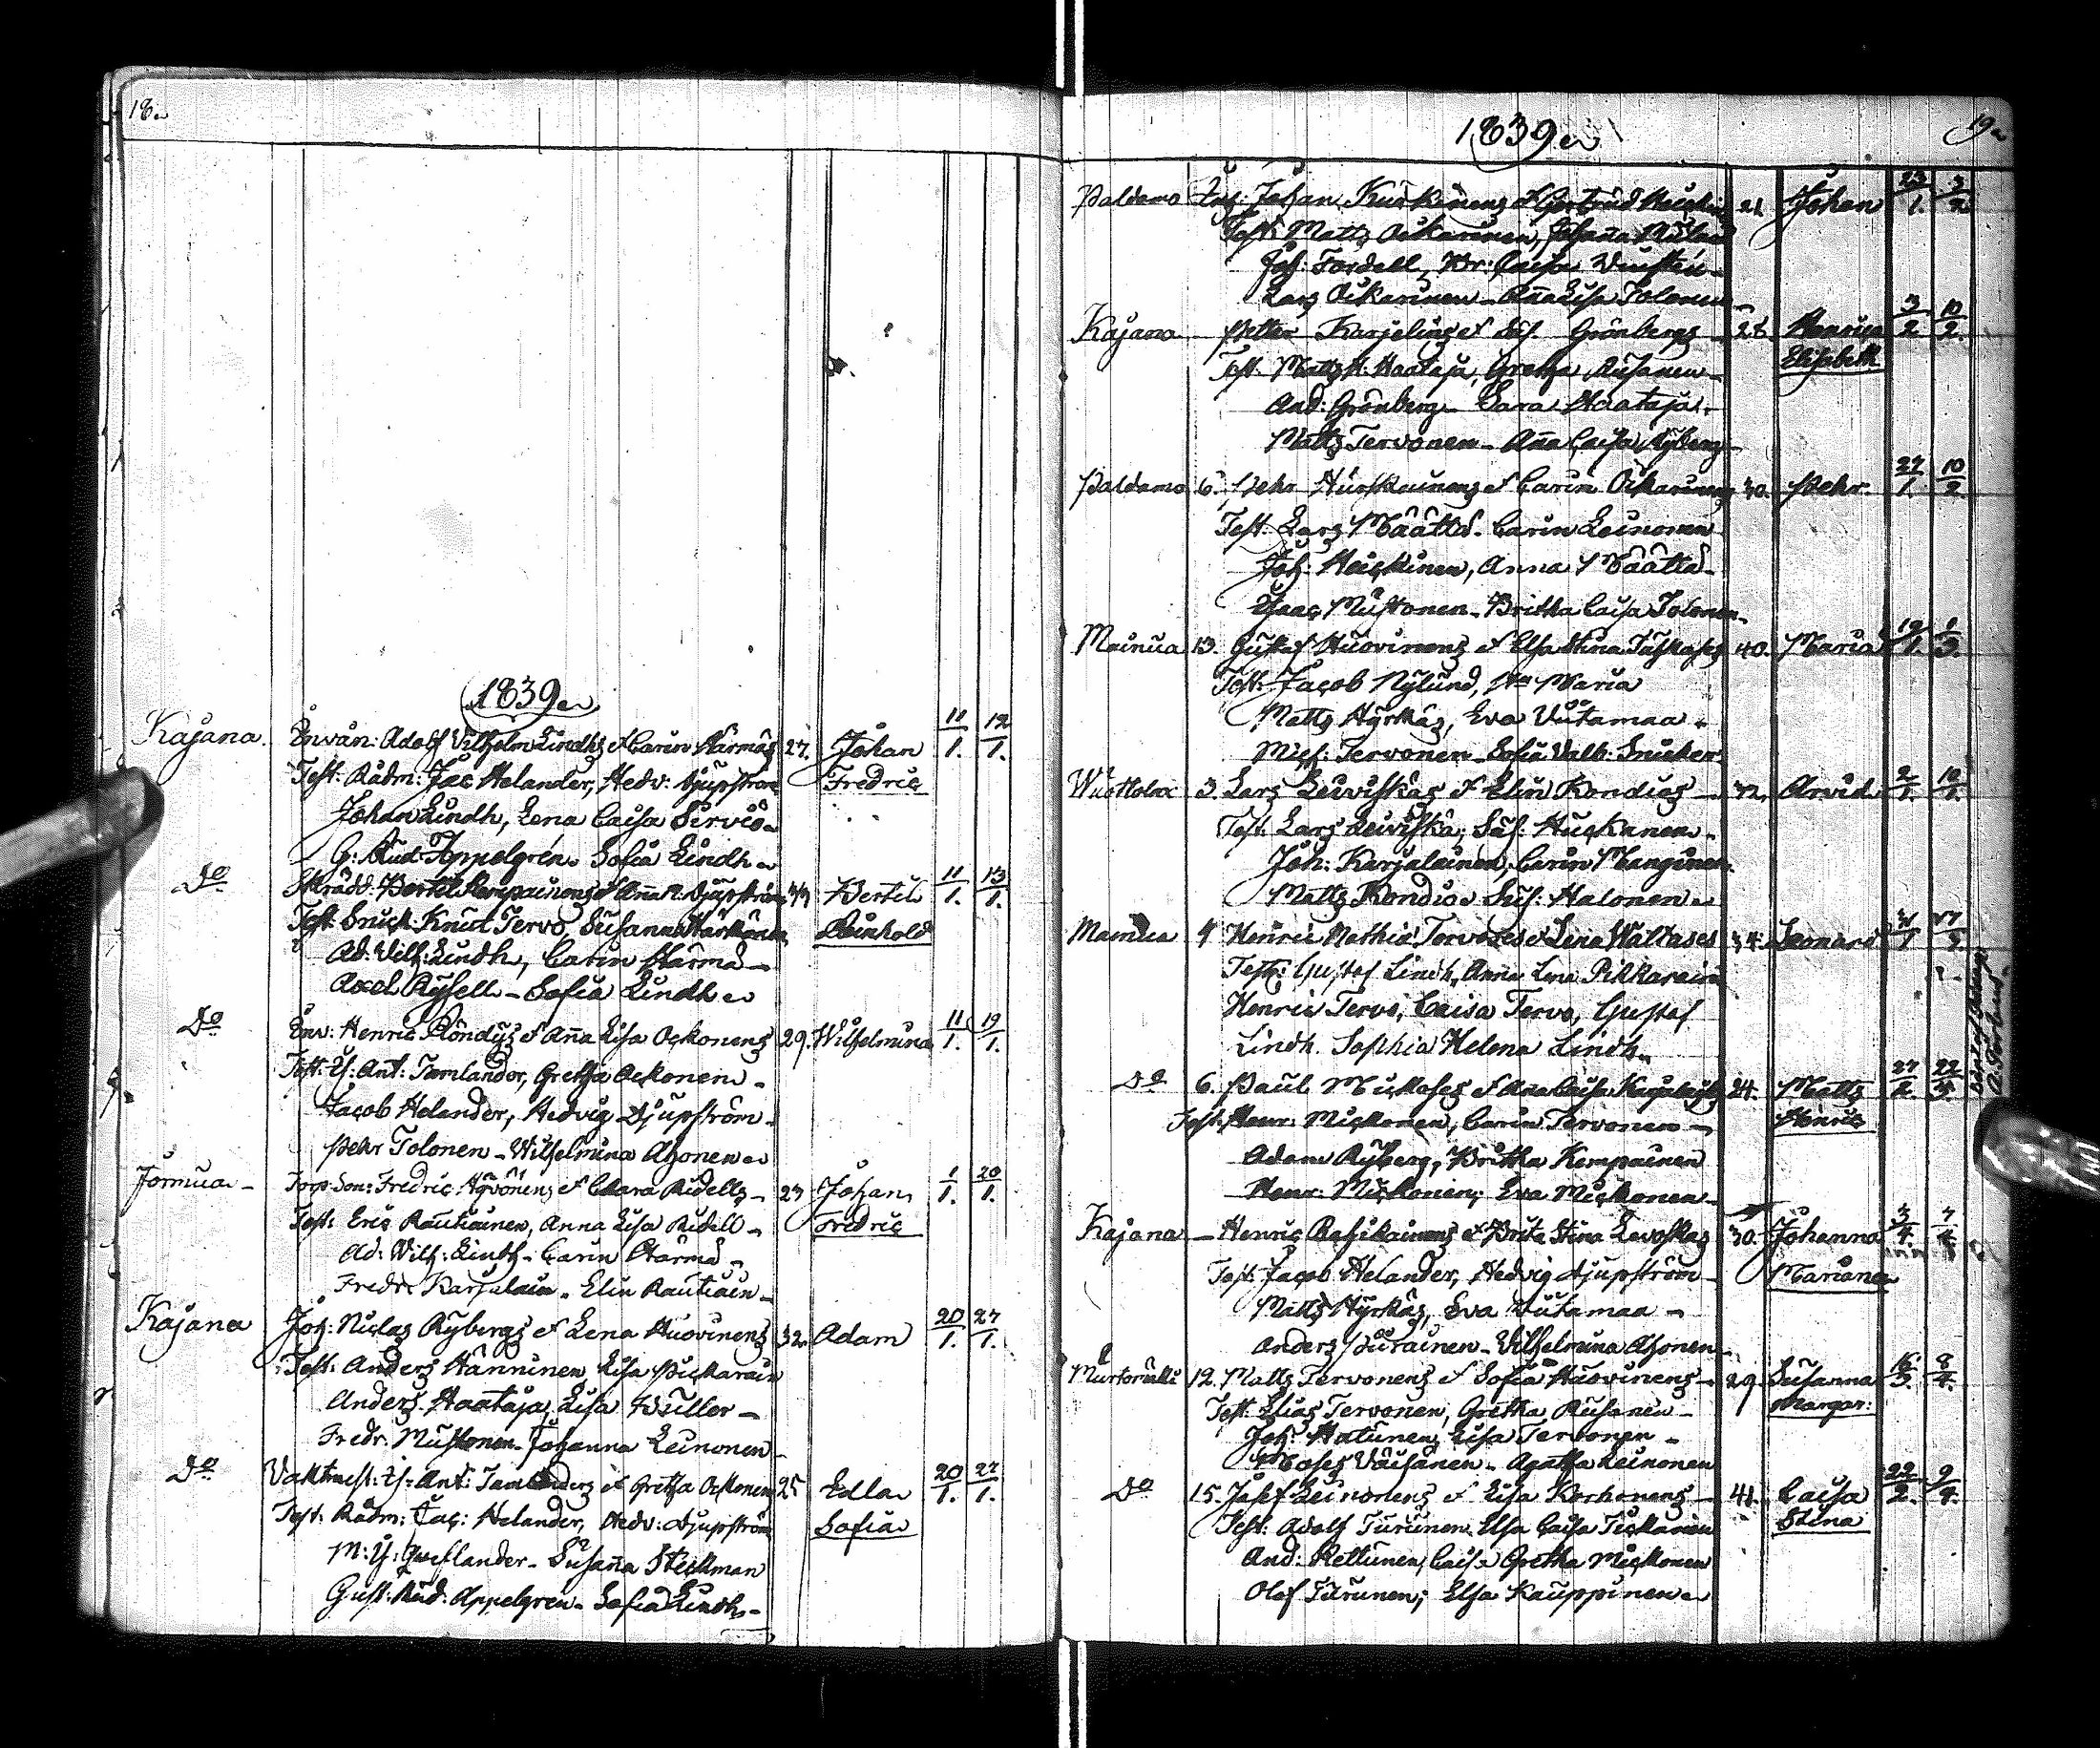 18.
1839.
Kajana. Enwån: Adolf Vilhelm Lindhs & Carin Härmäs 27. Johan 11/1. 12/1.
Test: Rådm: Jac Helander, Hedv: Djupström Fredric
Johan Lindh, Lena Caisa Serviö
G: Rud: Appelgrén. Sofia Lindh
Do Skrädd: Bertil Kempainens & Anna M. Djupströms Bertil 11/1. 13/1.
Test: Snick: Knut Tervo, Susanna Härkönen Reinhold
Ad: Vilh: Lindh, Carin Härmä
Axel Rysell - Sofia Lindh
Do Enw: Henric Röndys & Anna Lisa Ockonens 29. Wilhelmina 11/1. 19/1.
Test: Is: Ant: Tamlander, Gretha Ockonen
Jacob Helander, Hedvig Djupström
Pehr Tolonen - Wilhelmina Ahonen
Jormua - Torp: Son: Fredric Hyvönens & Clara Ridells - 27 Johan 1/1. 20/1.
Test: Eric Rautiainen, Anna Lisa Ridell - Fredric
Ad: Wilh: Lindh - Carin Härmä
Fredr: Karjalain - Elin Rautiain -
Kajana Joh: Niclas Rybergs & Lena Huovinens 32. Adam 20/1. 27/1.
Test: Anders Hänninen Lisa Pickarain
Anders Haataja, Lisa Wuller -
Fredr: Mustonen - Johanna Leinonen -
Do Vaktmest: Is: Ant: Tamlanders & Gretha Ockonens 25 Edla 20/1. 27/1.
Test: Rådm: Jac: Helander, Hedv: Djupström Sofia
Susanna Steckman
Gust: Rud: Appelgren - Sofia Lindh -
1839. 19
Paldamo Johan Kurkinens & Gertrud Johan 23/1. 3/2
Test: Matts Oikarinen, Johanna
Joh: Tordell, Br: Caisa
Lars Oikarinen - Anna Lisa Tolonen -
Kajana - Petter Karjelins & Sus. Grönbergs - 28. Henrica 3/2 10/2.
Test: Matts H: Haataja, Gretha Rusanen - Elisabeth.
And: Grönberg - Sara Haataja -
Matts Tervonen - Anna Caisa Ryberg -
Paldamo 6. Pehr Hurskainens & Carin Oikarinens 30. Pehr. 27/1. 10/2.
Test: Lars Määttä - Carin Leinonen
Joh: Heickinen, Anna Määttä -
Isaac Mustonen - Britha Caisa Tolonen -
Mainua 13. Gustaf Huovinens & Elsa Stina 40. Maria 19/1. 1/3.
Test: Jacob Nylund, Maria
Matts Hyrkäs, Eva Viitamaa
Mich: Tervonen - Sofia Valb: Snicker
Wuottolax 3. Lars Leiviskäs & Elin Kondies - Arvid 2/1. 10/1.
Test: Lars Leiviskä, Sus: Huckanen -
Joh: Karjalainen, Carin Manginen
Matts Kondio Sus: Halonen
Mainua 4 Henric Mathis Tervoses & Lena Wattases 34. Leonard
Test: Gustaf Lindh, Anna Lena Pikkarain
Henric Tervo, Caisa Tervo, Gustaf
Lindh. Sophia Helena Lindh
Do 6. Paul Mickoses & Anna Caisa 24. Matts 27/2. 22/3.
Test: Henr: Mickonen, Carin Tervonen - Henric
Adam Ryberg, Britha Kempainen
Henr: Mickonen; Eva Mickonen -
Kajana - Henric & Brita Stina 30. Johanna 3/4. 7/4.
Test: Jacob Helander, Hedvig Djupström - Mariana
Matts Hyrkäs, Eva Viitamaa -
Anders Piirainen - Wilhelmina Ahonen -
Murtomäki 12. Matts Tervonens & Sofia Huovinens - 29. Susanna 16/3. 8/4.
Test: Elias Tervonen, Gretha Rusanen - Margar:
Joh: Hatunen, Lisa Tervonen -
Moses Väisänen - Agatha Leinonen
Do 15. Josef Leinonens & Lisa Korhonens - 41. Caisa 22/2. 9/4.
Test: Adolf Turunen Elsa Caisa Tickanen Stina
And: Kettunen, Caisa Gretha Mickonen
Olof Turunen; Elsa Kauppinen